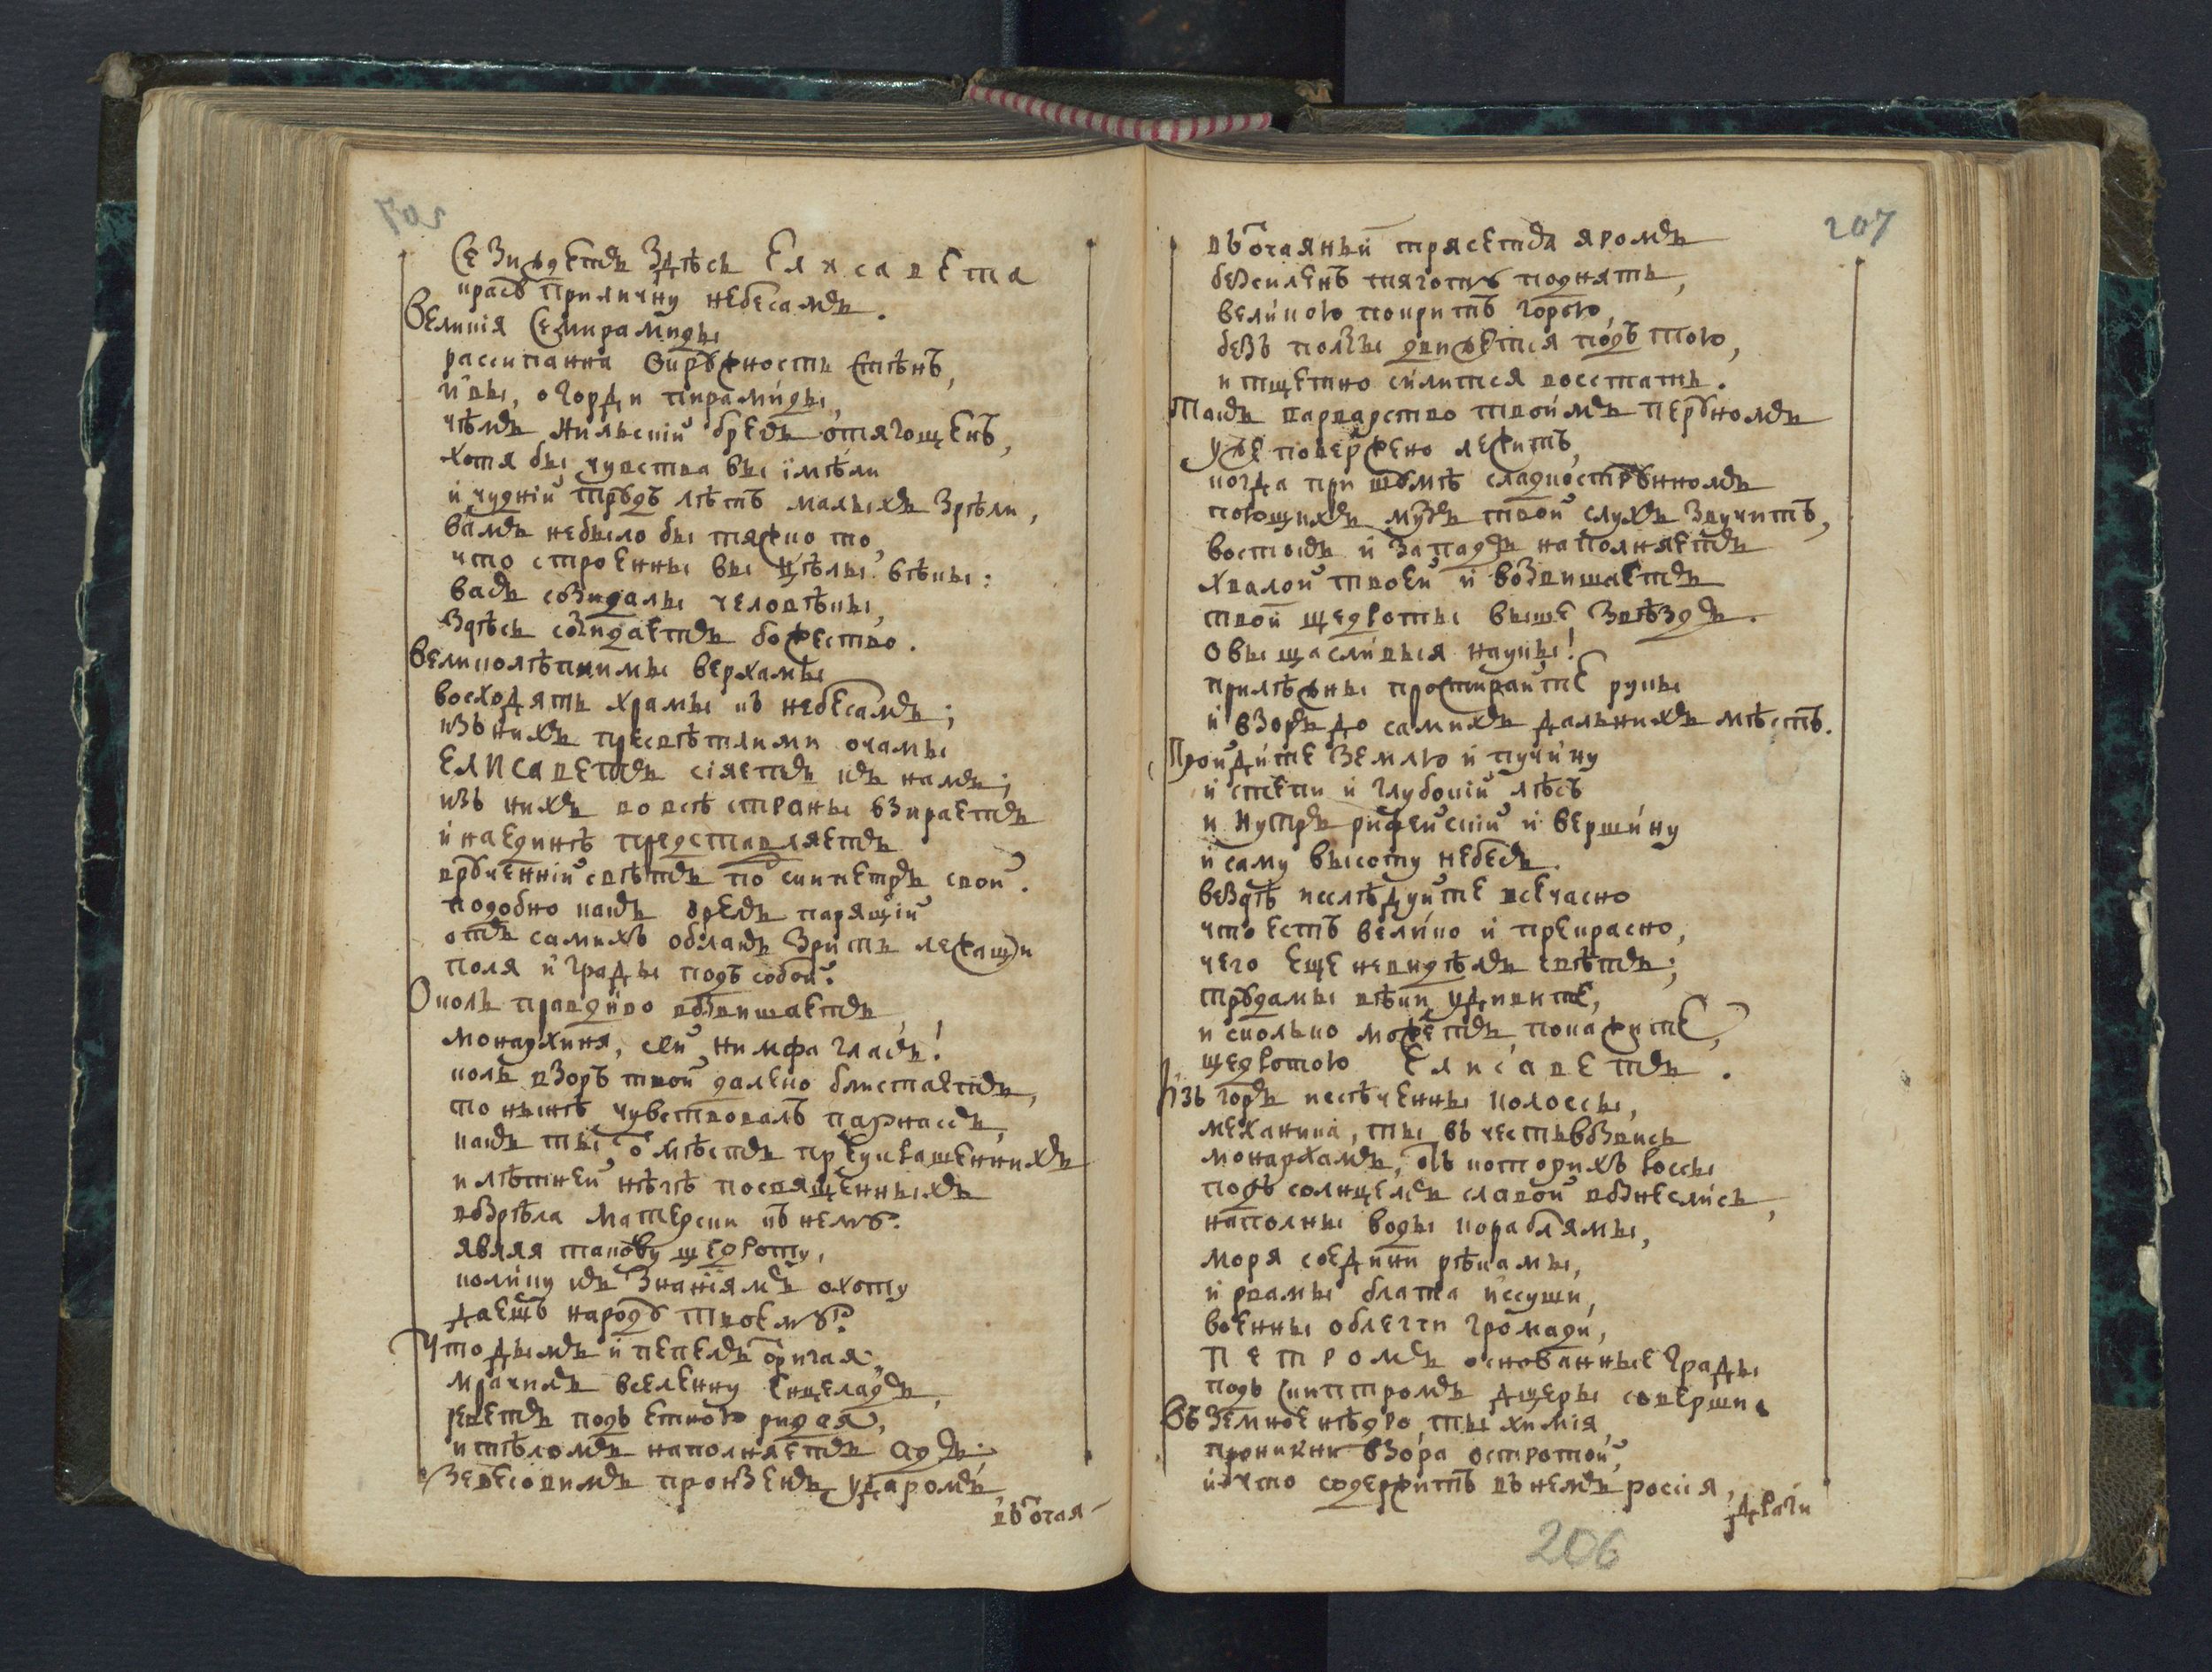 Сє Зиждетъ Здѣсь Елисавета
красъ приличну небесамъ.
Великія Семирамиды
рассипанна Окружность стѣнъ,
и вы, о горди пирамиды,
чѣмъ Нильскій брегъ отягощенъ,
хотя бы чувства вы імѣли
и чудній трудъ лѣтъ малыхъ Зрѣли,
вамъ небыло бы тяжко то,
что строенны вы цѣлы вѣки:
васъ созидалы человѣки,
Здѣсь созидаетъ божество.
Великолѣпнимы верхамы
восходять храмы къ небесамъ;
изъ нихъ пресвѣтлими очамы
ЕЛИСаветъ сіяетъ къ намъ;
изъ нихъ во всѣ страны взираетъ
и наединѣ представляетъ
врученній свѣтъ подъ скипетръ свой.
подобно какъ орелъ парящій
отъ самихъ облакъ Зрить лежащи
поля и грады подъ собой.
О коль правдиво возвишаетъ
монархиня, сей нимфа гласъ!
коль взоръ твой далеко блистаетъ,
то нынѣ чувствовалъ парнассъ,
какъ ты, о мѣстъ прекукрашеннихъ
и лѣтней нѣгѣ посвященныхъ
возрѣла матерски къ нему.
являя такову щедроту,
колику къ Знаніямъ охоту
даешъ народу твоему?
Что дымъ и пепелъ отригая,
мрачилъ вселенну Енцеладъ,
реветъ подъ етною ридая,
и тѣломъ наполняетъ адъ;
Зевесовимъ пронзенъ ударомъ,
въ отчая-
207
въ отчаяньи трясетъся яромъ
безсиленъ тяготу поднять,
великою покритъ горою,
безъ ползы движется подъ тою,
и тщетно силится востать.
Такъ варварство твоимъ перуномъ
уже повержено лежитъ,
когда при шумѣ сладкострунномъ
поющихъ музъ твой слухъ Звучитъ,
востокъ и Западъ наполняетъ
хвалой твоей и возвишаетъ
твои щедроты выше Звѣздъ.
О вы щасливыя науки!
прилѣжны простирайте руки
и взоръ до самихъ дальнихъ мѣстъ.
Пройдите Землю и пучину
и степи и глубокій лѣсъ
и нутръ рифейскій и вершину
и саму высоту небесъ.
вездѣ изслѣдуйте всечасно
что естъ велико и прекрасно,
чего еще невидѣлъ свѣтъ;
трудамы вѣки удивите,
и сколько можетъ, покажите,
щедротою Елисаветъ.
Изъ горъ изсѣченны колоссы,
механика, ты въ честь возвись
монархамъ, отъ которихъ россы
подъ солнцемъ славой вознеслись,
наполны воды кораблямы,
моря соедини рѣкамы,
и рвамы блата изсуши,
военны облегчи громади,
ПЕТРОМЪ основанные грады
подъ скиптромъ дщеры соверши.
Въ Земное нѣдро, ты химія,
проникни взора остротой,
и что содержитъ въ немъ россія,
драги
206